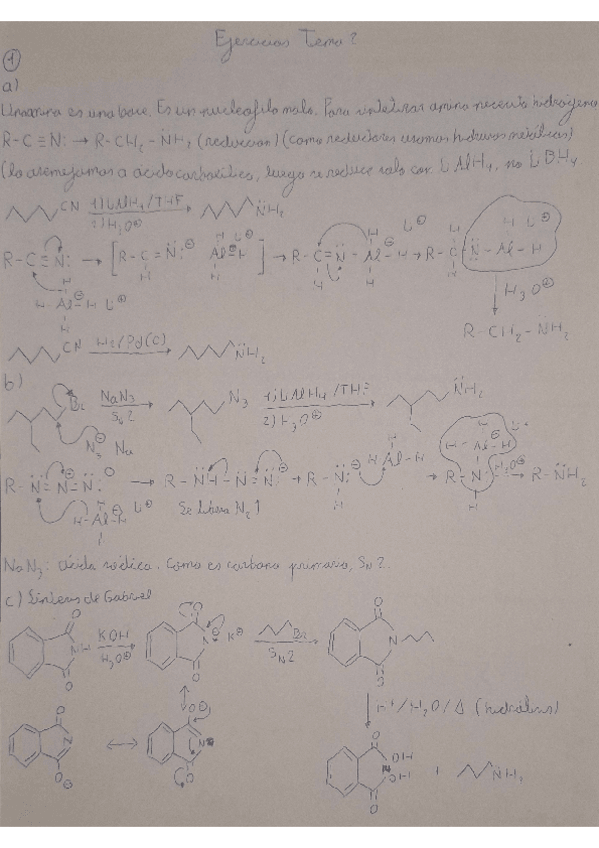 Ejercicios Tema 2
1
a)
Una amina es una base. Es un nucleofilo malo. Para sintetizar amina necesito hidrógeno
R-C≡N: → R-CH2-NH2 (reducción) (como reductores usamos hidruros metálicos)
(lo asemejamos a ácido carboxílico, luego se reduce solo con LiAlH4, no LiBH4
CN 1) LiAlH4/THF 2) H3O⊕ → NH2
R-C≡N: → [R-C=N:⊖ Al-H] → R-C=N-Al-H Li⊕ → R-C-N-Al-H
H-Al-H Li⊕
H3O⊕
R-CH2-NH2
CN H2/Pd(C) → NH2
b)
Br NaN3 SN2 → N3 1) LiAlH4/THF 2) H3O⊕ → NH2
N3⊖ Na
R-N=N=N⊖ → R-NH-N=N⊖ → R-N⊖ H-Al-H → R-N H3O⊕ → R-NH2
H-Al-H Li⊕ Se libera N2↑
NaN3: azida sódica. Como es carbono primario, SN2.
c) Síntesis de Gabriel
O NH O KOH H3O⊕ → O N⊖ O K⊕ Br SN2 → O N O
H+/H2O/Δ (hidrólisis)
O N O⊖ ↔ O N O
O OH OH O + NH2